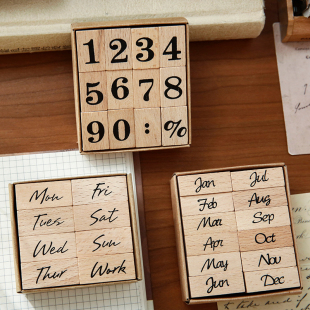 1 2 3 4
5 6 7 8
9 0 : %
Mon Fri
Tues Sat
Wed Sun
Thur Work
Jan Jul
Feb Aug
Mar Sep
Apr Oct
May Nov
Jun Dec